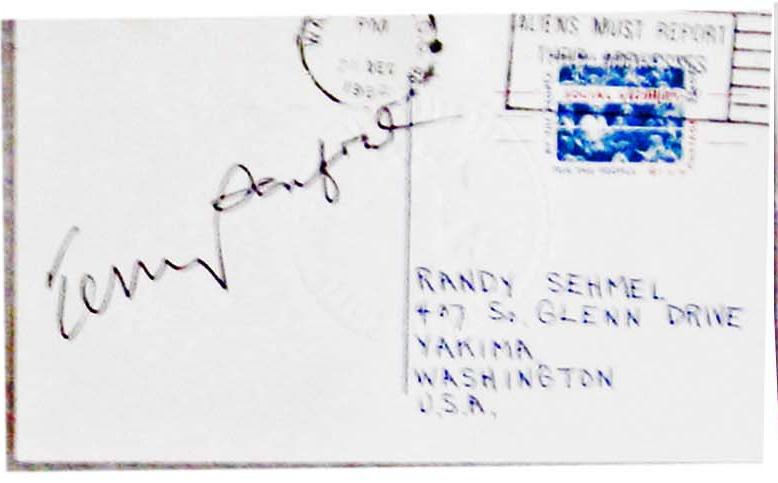 PM
ALIENS MUST REPORT
THEIR ADDRESSES
Terry Sanford
RANDY SEHMEL
407 So. GLENN DRIVE
YAKIMA
WASHINGTON
U.S.A.